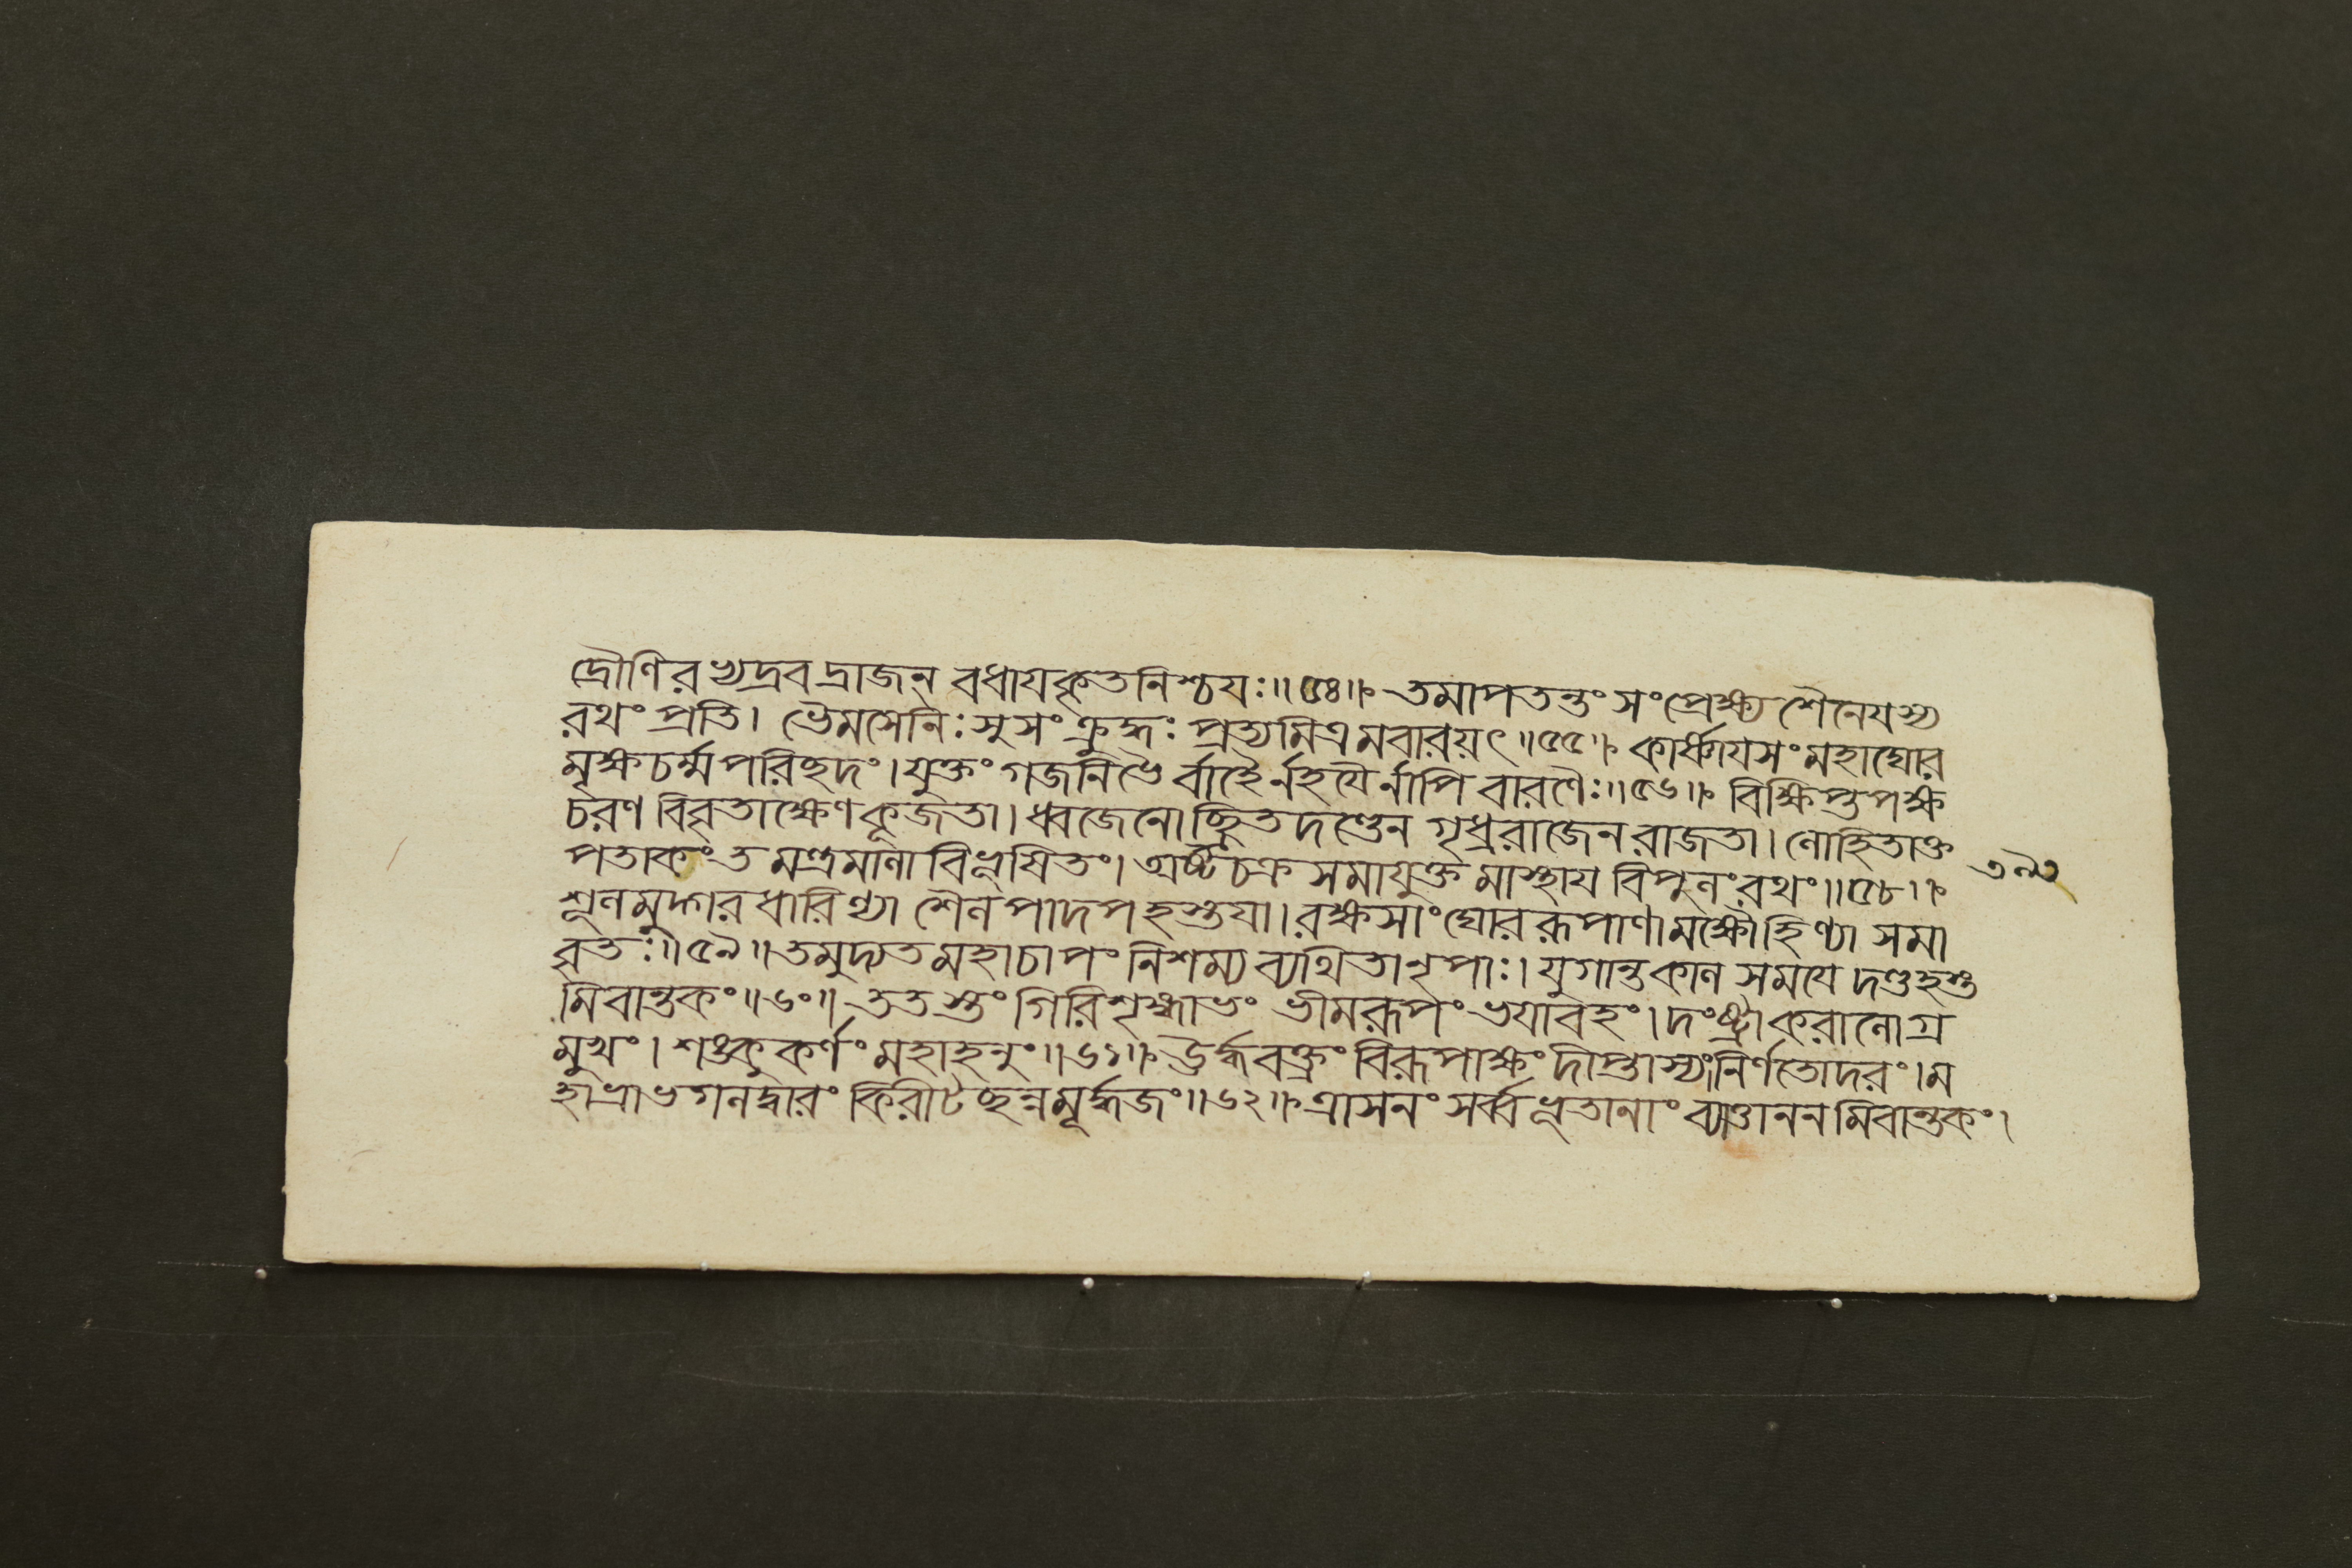 দ্রৌণিরভ্যদ্রবদ্রাজন্ বধায কৃতনিশ্চযঃ॥৫৪॥ তমাপতন্তং সংপ্রেক্ষ্য শৈনেযস্য
রথং প্রতি। ভৈমসেনিঃ সুসংক্রুদ্ধঃ প্রত্যমিত্রমবারয়ৎ॥৫৫॥ কার্ষ্ণাযসং মহাঘোর
মৃক্ষচর্ম্মপরিছদং। যুক্তং গজনিভৈর্বাহৈর্নহযৈর্নাপি বারণৈঃ॥৫৬॥ বিক্ষিপ্তপক্ষ
চরণ বিবৃতাক্ষেণ কূজতা। ধ্বজেনোচ্ছ্রিতদণ্ডেন গৃধ্ররাজেন রাজতা। লোহিতাক্ত
পতাকং তমন্ত্রমালা বিভূষিতং। অষ্টচক্রসমাযুক্তমাস্থায বিপুলং রথং॥৫৮॥
৩৯৩
শূলমুদ্গরধারিণ্যা শৈলপাদপহস্তযা। রক্ষসাং ঘোররূপাণামক্ষৌহিণ্যা সমা
বৃতঃ॥৫৯॥ তমুদ্যতমহাচাপং নিশম্য ব্যথিতা নৃপাঃ। যুগান্তকালসমযে দণ্ডহস্ত
মিবান্তকং॥৬০॥ ততস্তং গিরিশৃঙ্গাভং ভীমরূপং ভযাবহং। দংষ্ট্রাকরালোগ্র
মুখং। শঙ্কুকর্ণং মহাহনুং॥৬১॥ ঊর্দ্ধবক্ত্রং বিরূপাক্ষং দীপ্তাস্যং নির্ণতোদরং। ম
হাশ্বভ্রগলদ্বারং কিরীটছন্নমূর্দ্ধজং॥৬২॥ ত্রাসনং সর্ব্বভূতানাং ব্যাত্তাননমিবান্তকং।